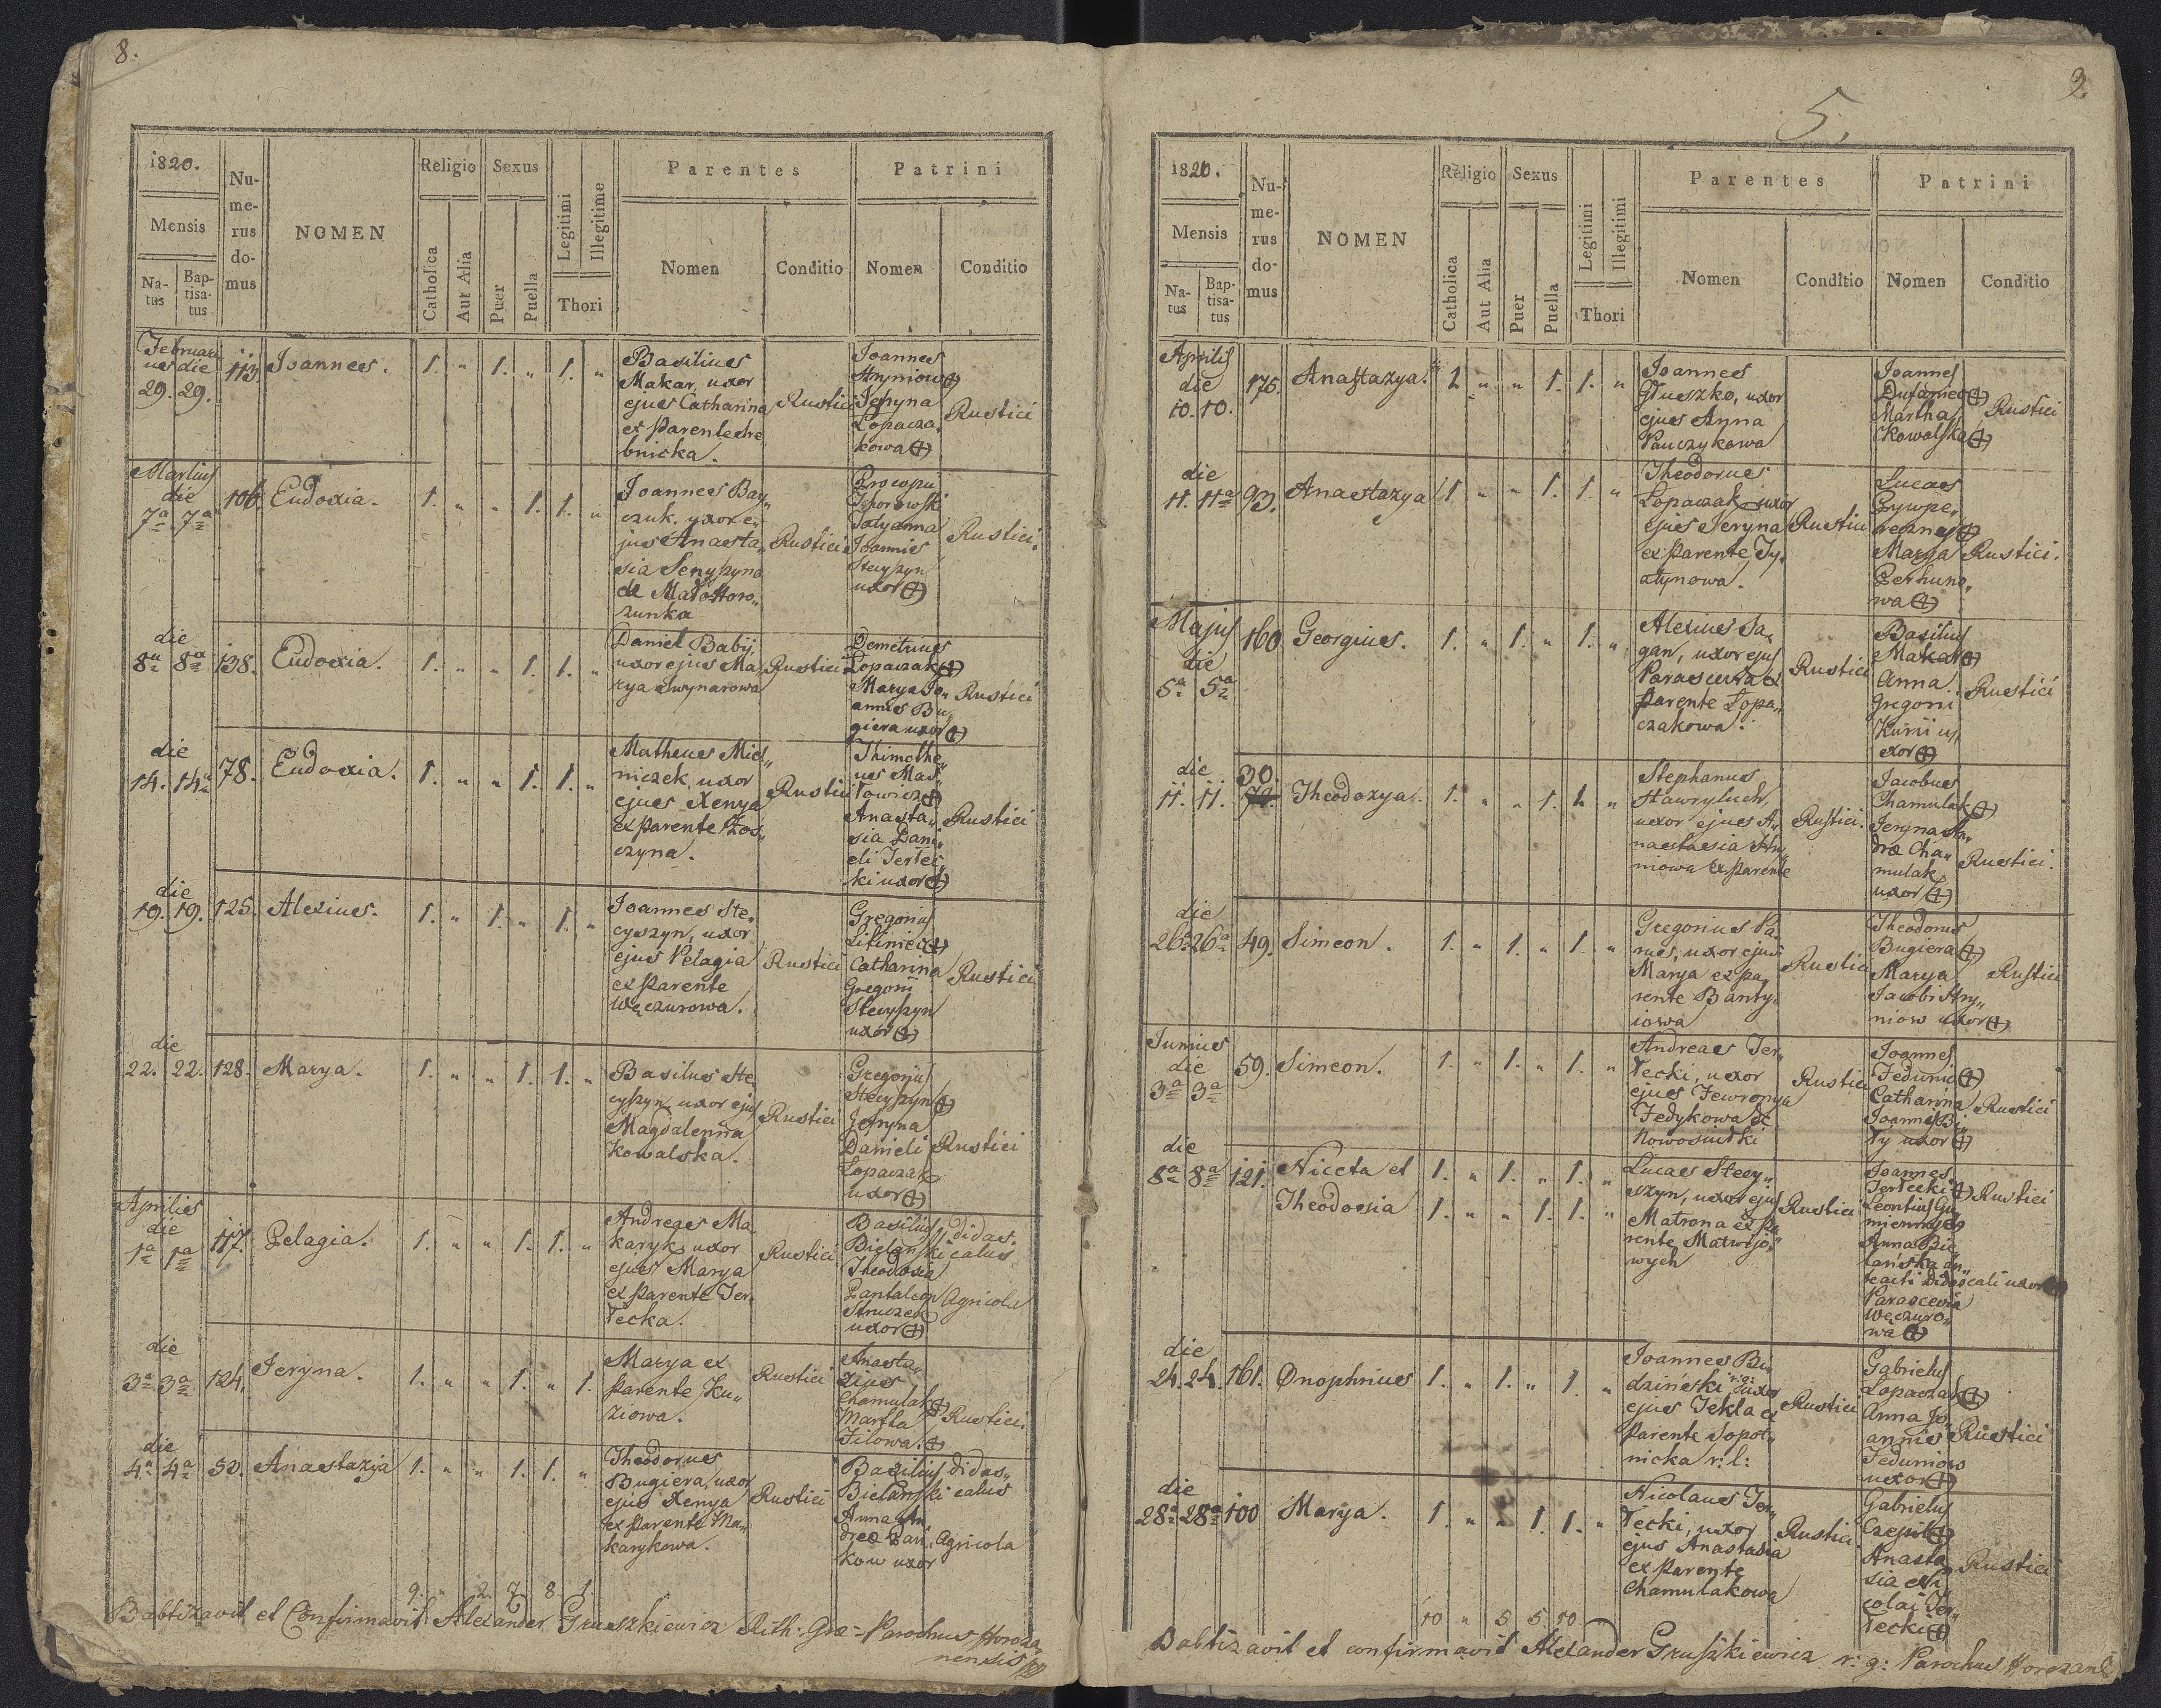 8.
1820.
Mensis
Na-
tus
Bap-
tisa-
tus
Nu-
me-
rus
do-
mus
NOMEN
Religio
Catholica
Aut Alia
Sexus
Puer
Puella
Legitimi
Illegitime
Thori
Parentes
Nomen
Conditio
Patrini
Nomen
Conditio
Februari
us die
29. 29.
113.
Joannes.
1. " 1. " 1. "
Basilius
Makar, uxor
ejus Catharina
ex Parente
bnicka.
Rustici
Joannes
Hryniow
Jeryna
Lopacza„
kowa
Rustici
Martius
die
7a 7a
106.
Eudoxia.
1. " " 1. 1. "
Joannes Bay„
czuk, uxor e„
jus Anasta„
sia Senyszyna
de
zunka
Rustici
Procopii
Tatyanna
Joannis
Stecyszyn
uxor
Rustici.
die
8a 8a
138.
Eudoxia.
1. " " 1. 1. "
Daniel Babij,
uxor ejus Ma„
rya Swynarowa
Rustici
Demetrius
Lopaczak
Marya Jo„
annis Bu„
giera uxor
Rustici
die
14. 14a
78.
Eudoxia.
1. " " 1. 1. "
Matheus Miel„
niczek, uxor
ejus Xenya
ex Parente Łos„
czyna.
Rustici
Thimothe„
us Mas„
łowicz
Anasta„
sia Dani„
eli Terlec„
ki uxor
Rustici
die
19. 19.
125.
Alexius.
1. " 1. " 1. "
Joannes Ste„
cyszyn, uxor
ejus Pelagia
ex Parente
Węczurowa.
Rustici
Gregorius
Litiniec
Catharina
Gregorii
Stecyszyn
uxor
Rustici
die
22. 22.
128.
Marya.
1. " " 1. 1. "
Basilius Ste„
cyszyn uxor ejus
Magdalenna
Kowalska.
Rustici
Gregorius
Stecyszyn
Jeryna
Danieli
Lopaczak
uxor
Rustici
Aprilis
die
1a 1a
117.
Pelagia.
1. " " 1. 1. "
Andreas Ma„
karyk, uxor
ejus Marya
ex Parente Ter„
lecka.
Rustici
Basilius
Bielanski
Theodosia
Pantaleon
uxor
didas„
calus
Agricola
die
3a 3a
124.
Jeryna.
1. " " 1. " 1.
Marya ex
Parente Ku„
ziowa.
Rustici
Anasta„
zius
Chamulak
Martha
Filowa.
Rustici.
die
4a 4a
50.
Anastazya
1. " " 1. 1. "
Theodorus
Bugiera, uxor
ejus Xenya
ex Parente Ma„
karykowa.
Rustici
Basilius
Bielanski
Anna An„
dreæ Pan„
kow uxor
didas„
calus
Agricola
9. " 2. 7. 8. 1.
Babtizavit et Confirmavit Alexander Gruszkiewicz Rith: Græ= Parochus Horoża„
nensis
9.
5.
1820.
Mensis
Na-
tus
Bap-
tisa-
tus
Nu-
me-
rus
do-
mus
NOMEN
Religio
Catholica
Aut Alia
Sexus
Puer
Puella
Legitimi
Illegitimi
Thori
Parentes
Nomen
Conditio
Patrini
Nomen
Conditio
Aprilis
die
10. 10.
175.
Anastazya.
1. " " 1. 1. "
Joannes
Głuszko, uxor
ejus Anna
Pauczykowa
Joannes
Dufaniec
Martha
Kowalska
Rustici
die
11. 11a
93.
Anastazya
1. " " 1. 1. "
Theodorus
Lopaczak uxor
ejus Jeryna
ex Parente Ty„
atynowa.
Rustici
Lucas
Marya
wa
Rustici.
Majus
die
5a 5a
160
Georgius.
1. " 1. " 1. "
Alexius Sa„
gan, uxor ejus
Parascevia ex
Parente Lopa„
czakowa.
Rustici
Basilius
Makar
Anna
Gregorii
Kurii u„
xor
Rustici
die
11. 11.
30.
Theodozya.
1. " " 1. 1. "
Stephanus
Hawryluch,
uxor ejus A„
nastasia Hry„
niowa ex Parente
Rustici.
Jacobus
Chamulak
Jeryna An„
dreæ Cha„
mulak
uxor
Rustici.
die
26a 26a
49.
Simeon.
1. " 1. " 1. "
Gregorius Pa„
rus, uxor ejus
Marya ex Pa„
rente Banty„
iowa
Rustici
Theodorus
Bugiera
Marya
Jacobi Hry„
niow uxor
Rustici
Junius
die
3a 3a
59.
Simeon.
1. " 1. " 1. "
Andreas Ter„
lecki, uxor
ejus Fewronya
Fedykowa ex
Nowosiulki
Rustici
Joannes
Feduniw
Catharina
Joannis Bi„
ły uxor
Rustici
die
8a 8a
121.
Niceta et
Theodosia
1. " 1. " 1. "
1. " " 1. 1. "
Lucas Stecy„
szyn, uxor ejus
Matrona ex Pa„
rente Matwijo„
wych
Rustici
Joannes
Terlecki
Leontius Gu„
mienny
Anna Bie„
lańska an„
teacti didascali uxor
Parascevia
Węczuro„
wa
Rustici
die
24. 24.
161.
Onophrius
1. " 1. " 1. "
Joannes Bu„
dziński r: g: uxor
ejus Tekla ex
Parente Sopot„
nicka r: l:
Rustici
Gabrielus
Lopaczak
Anna Jo„
annis
Feduniow
uxor
Rustici
die
28a 28a
100
Marya.
1. " " 1. 1. "
Nicolaus Ter„
lecki, uxor
ejus Anastasia
ex Parente
Chamulakowa
Rustici
Gabrielus
Czepil
Anasta„
sia Ni„
colai Ter„
lecki
Rustici
10 " 5 5 10
Babtizavit et confirmavit Alexander Gruszkiewicz r: g: Parochus Horożans